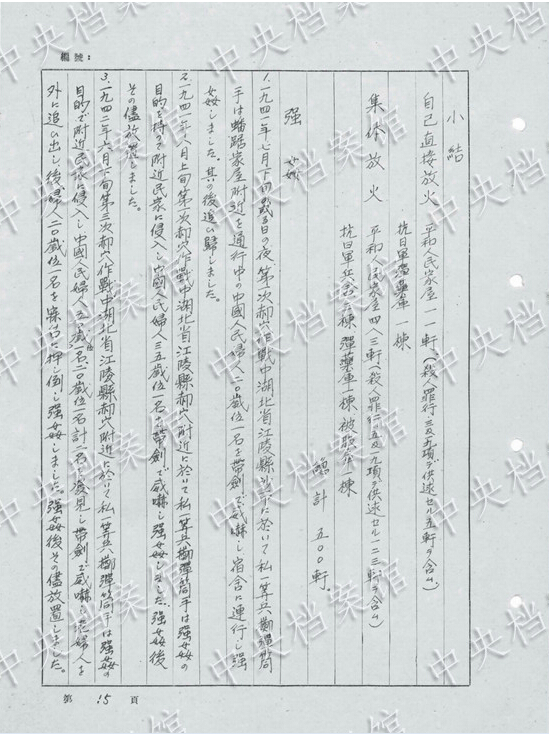 編號:
小結
自己直接放火 平和人民家屋 一一軒(殺人罪行 三及五九項デ供述セル五軒ヲ含ム)
抗日軍彈藥庫 一棟
集体放火 平和人民家屋 四八三軒(殺人罪行 五及一九項デ供述セル一二三軒ヲ含ム)
抗日軍兵舎 五棟 彈藥庫一棟 被服倉一棟
総計 五〇〇軒。
强 姦
1.一九四一年七月下旬の或る日の夜第一次郝穴作戰中湖北省江陵縣沙市に於いて私一等兵擲彈筒
手は蟠踞家屋附近を通行中の中國人民婦人二〇歲位一名を帶劍で威嚇し宿舍に連行し强
姦しました。其の後追い歸しました。
2.一九四一年八月上旬第二次郝穴作戰中湖北省江陵縣郝穴附近に於いて私一等兵擲彈筒手は强姦の
目的を持って附近民家に侵入し中國人民婦人三五歲位一名を帶劍で威嚇し强姦しました。强姦後
その儘放置しました。
3.一九四二年六月下旬第三次郝穴作戰中湖北省江陵縣郝穴附近に於いて私一等兵擲彈筒手は强姦の
目的で附近民家に侵入し中國人民婦人五〇歲位一名二〇歲位一名計二名を發見し帶劍で威嚇し老婦人を
外に追い出し、後婦人二〇歲位一名を寢台に押し倒し强姦しました。强姦後その儘放置しました。
第 15 頁
中央档案馆